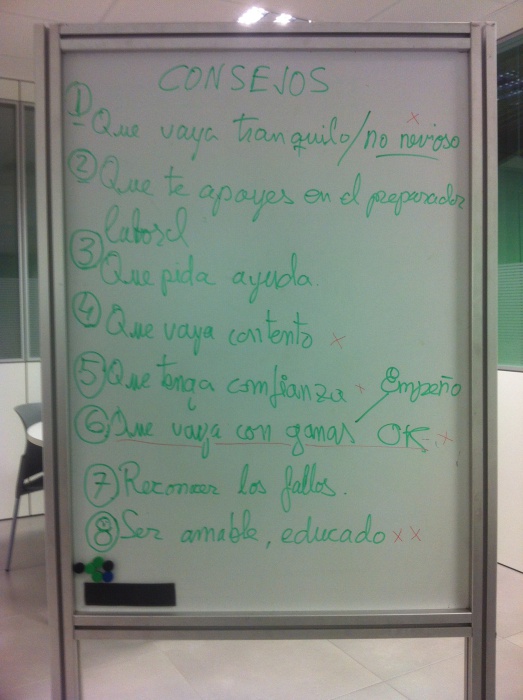 CONSEJOS
① Que vaya tranquilo/no nevioso x
② Que te apoyes en el preparador
laboral
③ Que pida ayuda.
④ Que vaya contento x
⑤ Que tenga comfianza x Empeño
⑥ Que vaya con ganas OK x
⑦ Reconocer los fallos.
⑧ Ser amable, educado x x